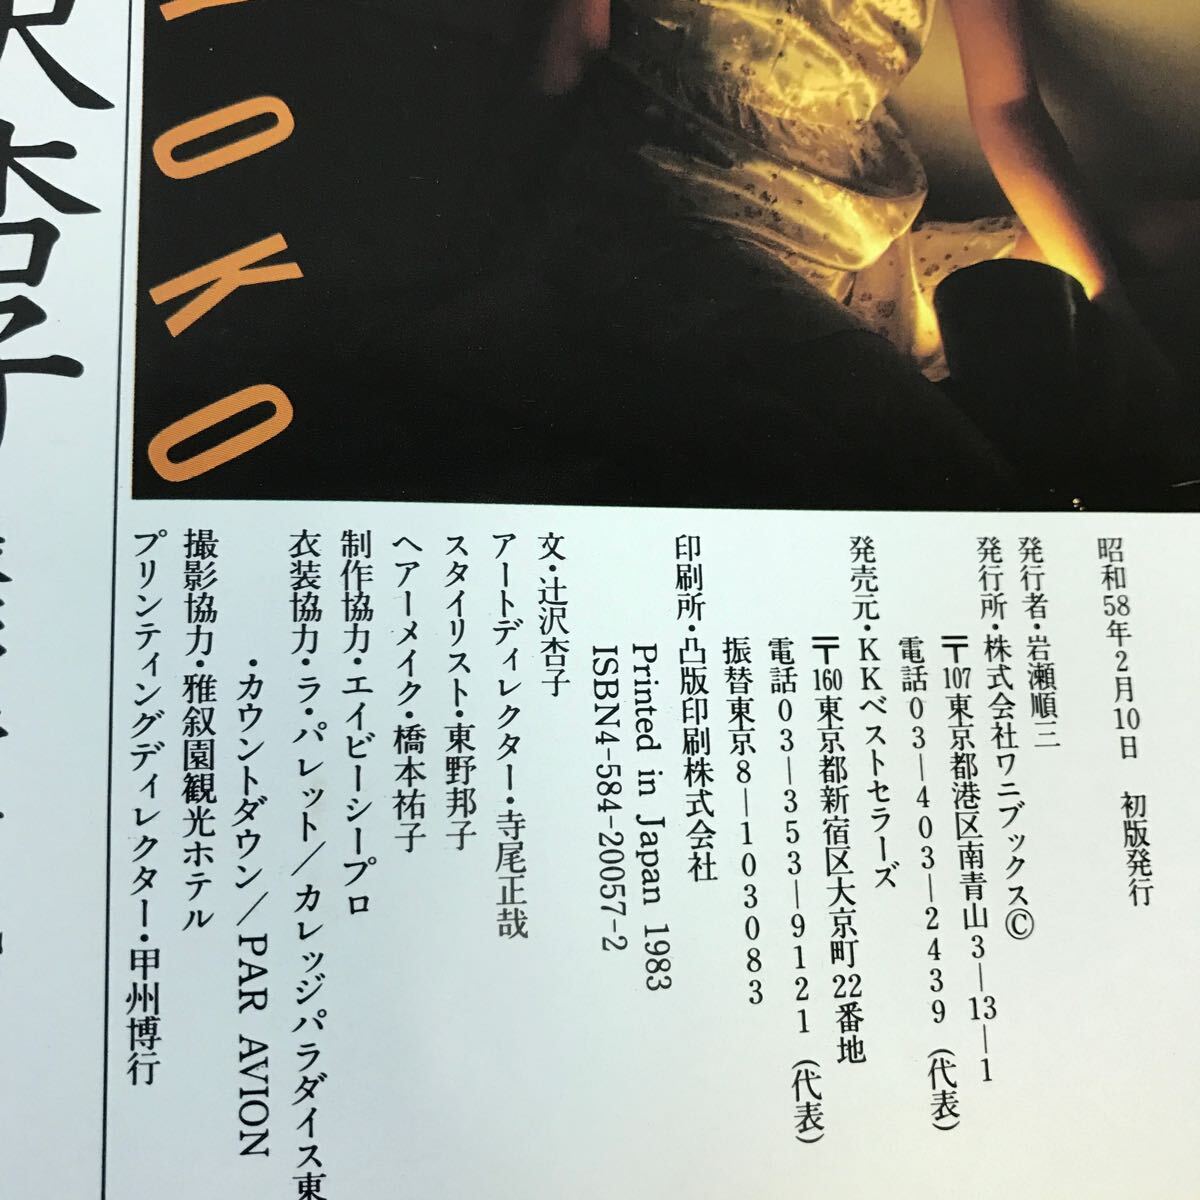 昭和58年2月10日 初版発行
発行者・岩瀬順三
発行所・株式会社ワニブックスⓒ
〒107東京都港区南青山3―13―1
電話03―403―2439（代表）
発売元・KKベストセラーズ
〒160東京都新宿区大京町22番地
電話03―353―9121（代表）
振替東京8―103083
印刷所・凸版印刷株式会社
Printed in Japan 1983
ISBN4-584-20057-2
文・辻沢杏子
アートディレクター・寺尾正哉
スタイリスト・東野邦子
ヘアーメイク・橋本祐子
制作協力・エイビーシープロ
衣装協力・ラ・パレット/カレッジパラダイス東
・カウントダウン/PAR AVION
撮影協力・雅叙園観光ホテル
プリンティングディレクター・甲州博行
OKO
沢杏子